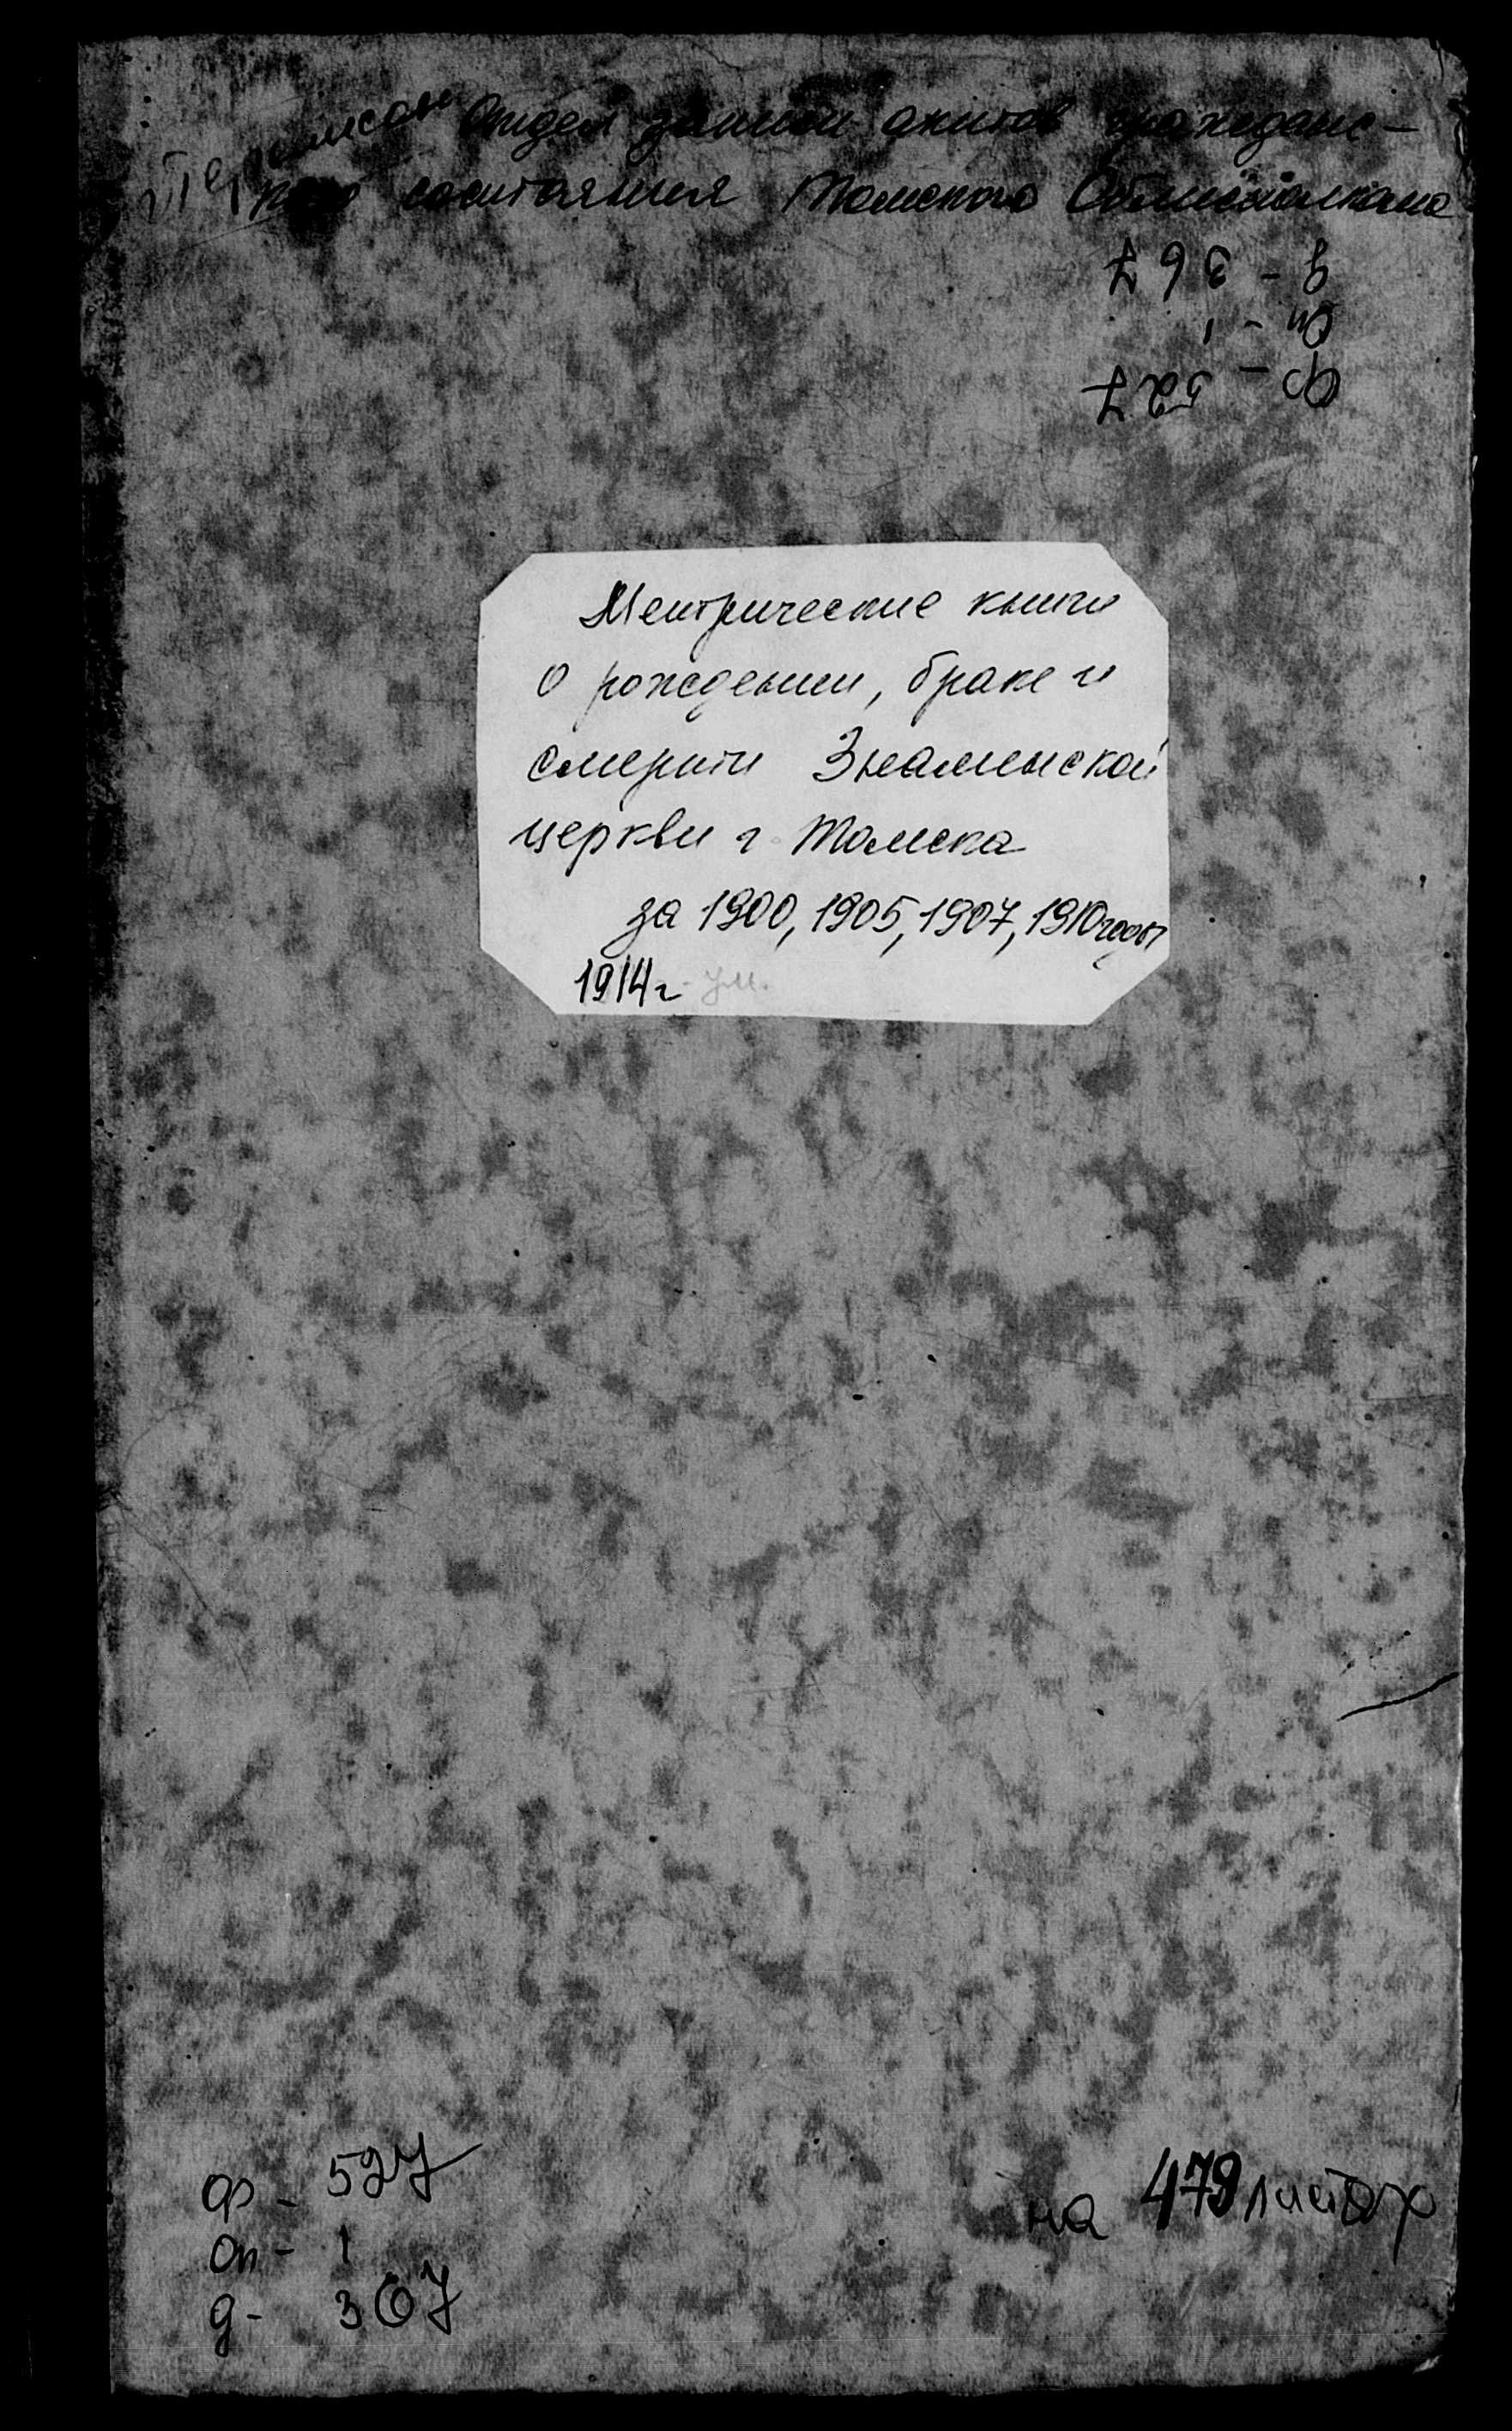 Отдел записи актов гражданс-
кого состояния Томского Облисполкома
д - 367
оп - 1
ф - 527
Метрические книги
о рождении, браке и
смерти Знаменской
церкви г. Томска
за 1900, 1905, 1907, 1910 годы
1914 г. ум.
ф - 527
оп - 1
д - 367
на 479 листах